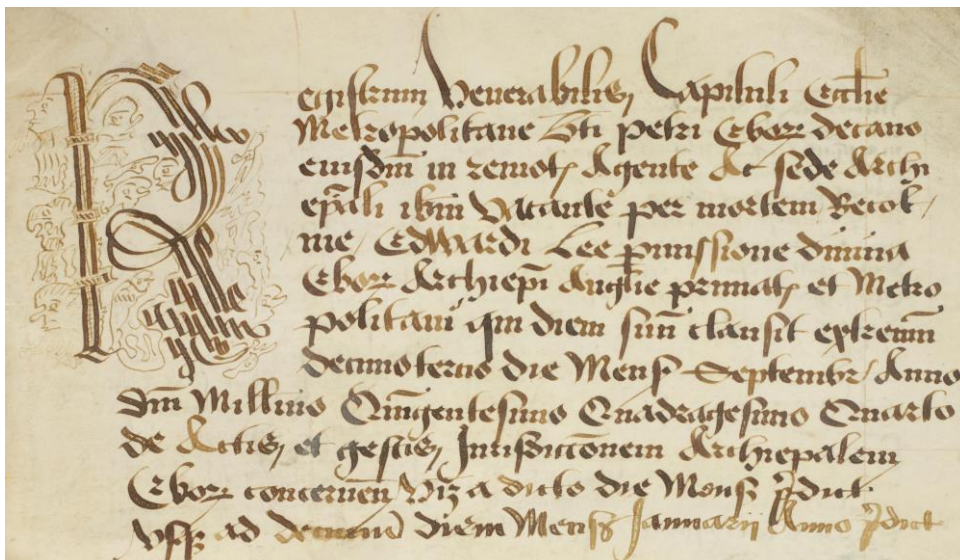 Registrum Venerabilis Capituli Ecclie
Metropolitane bti petri Ebor decano
eiusdm in remot Agente Ac sede Archi
epali ibm Vacante per mortem Recol
nie Edwardi Lee pmissione diuina
Ebor Archiepi Anglie primat et Metro
politani qui diem suu clausit extremu
decimotercio die Mens Septembr Anno
dm Millimo Quingentesimo Quadragesimo Quarto
de Actis et gestis Jurisdiccionem Archiepalem
Ebor concernen Viz a dicto die Mens pdict
vsq ad decimu diem Mens Januarii Anno pdict